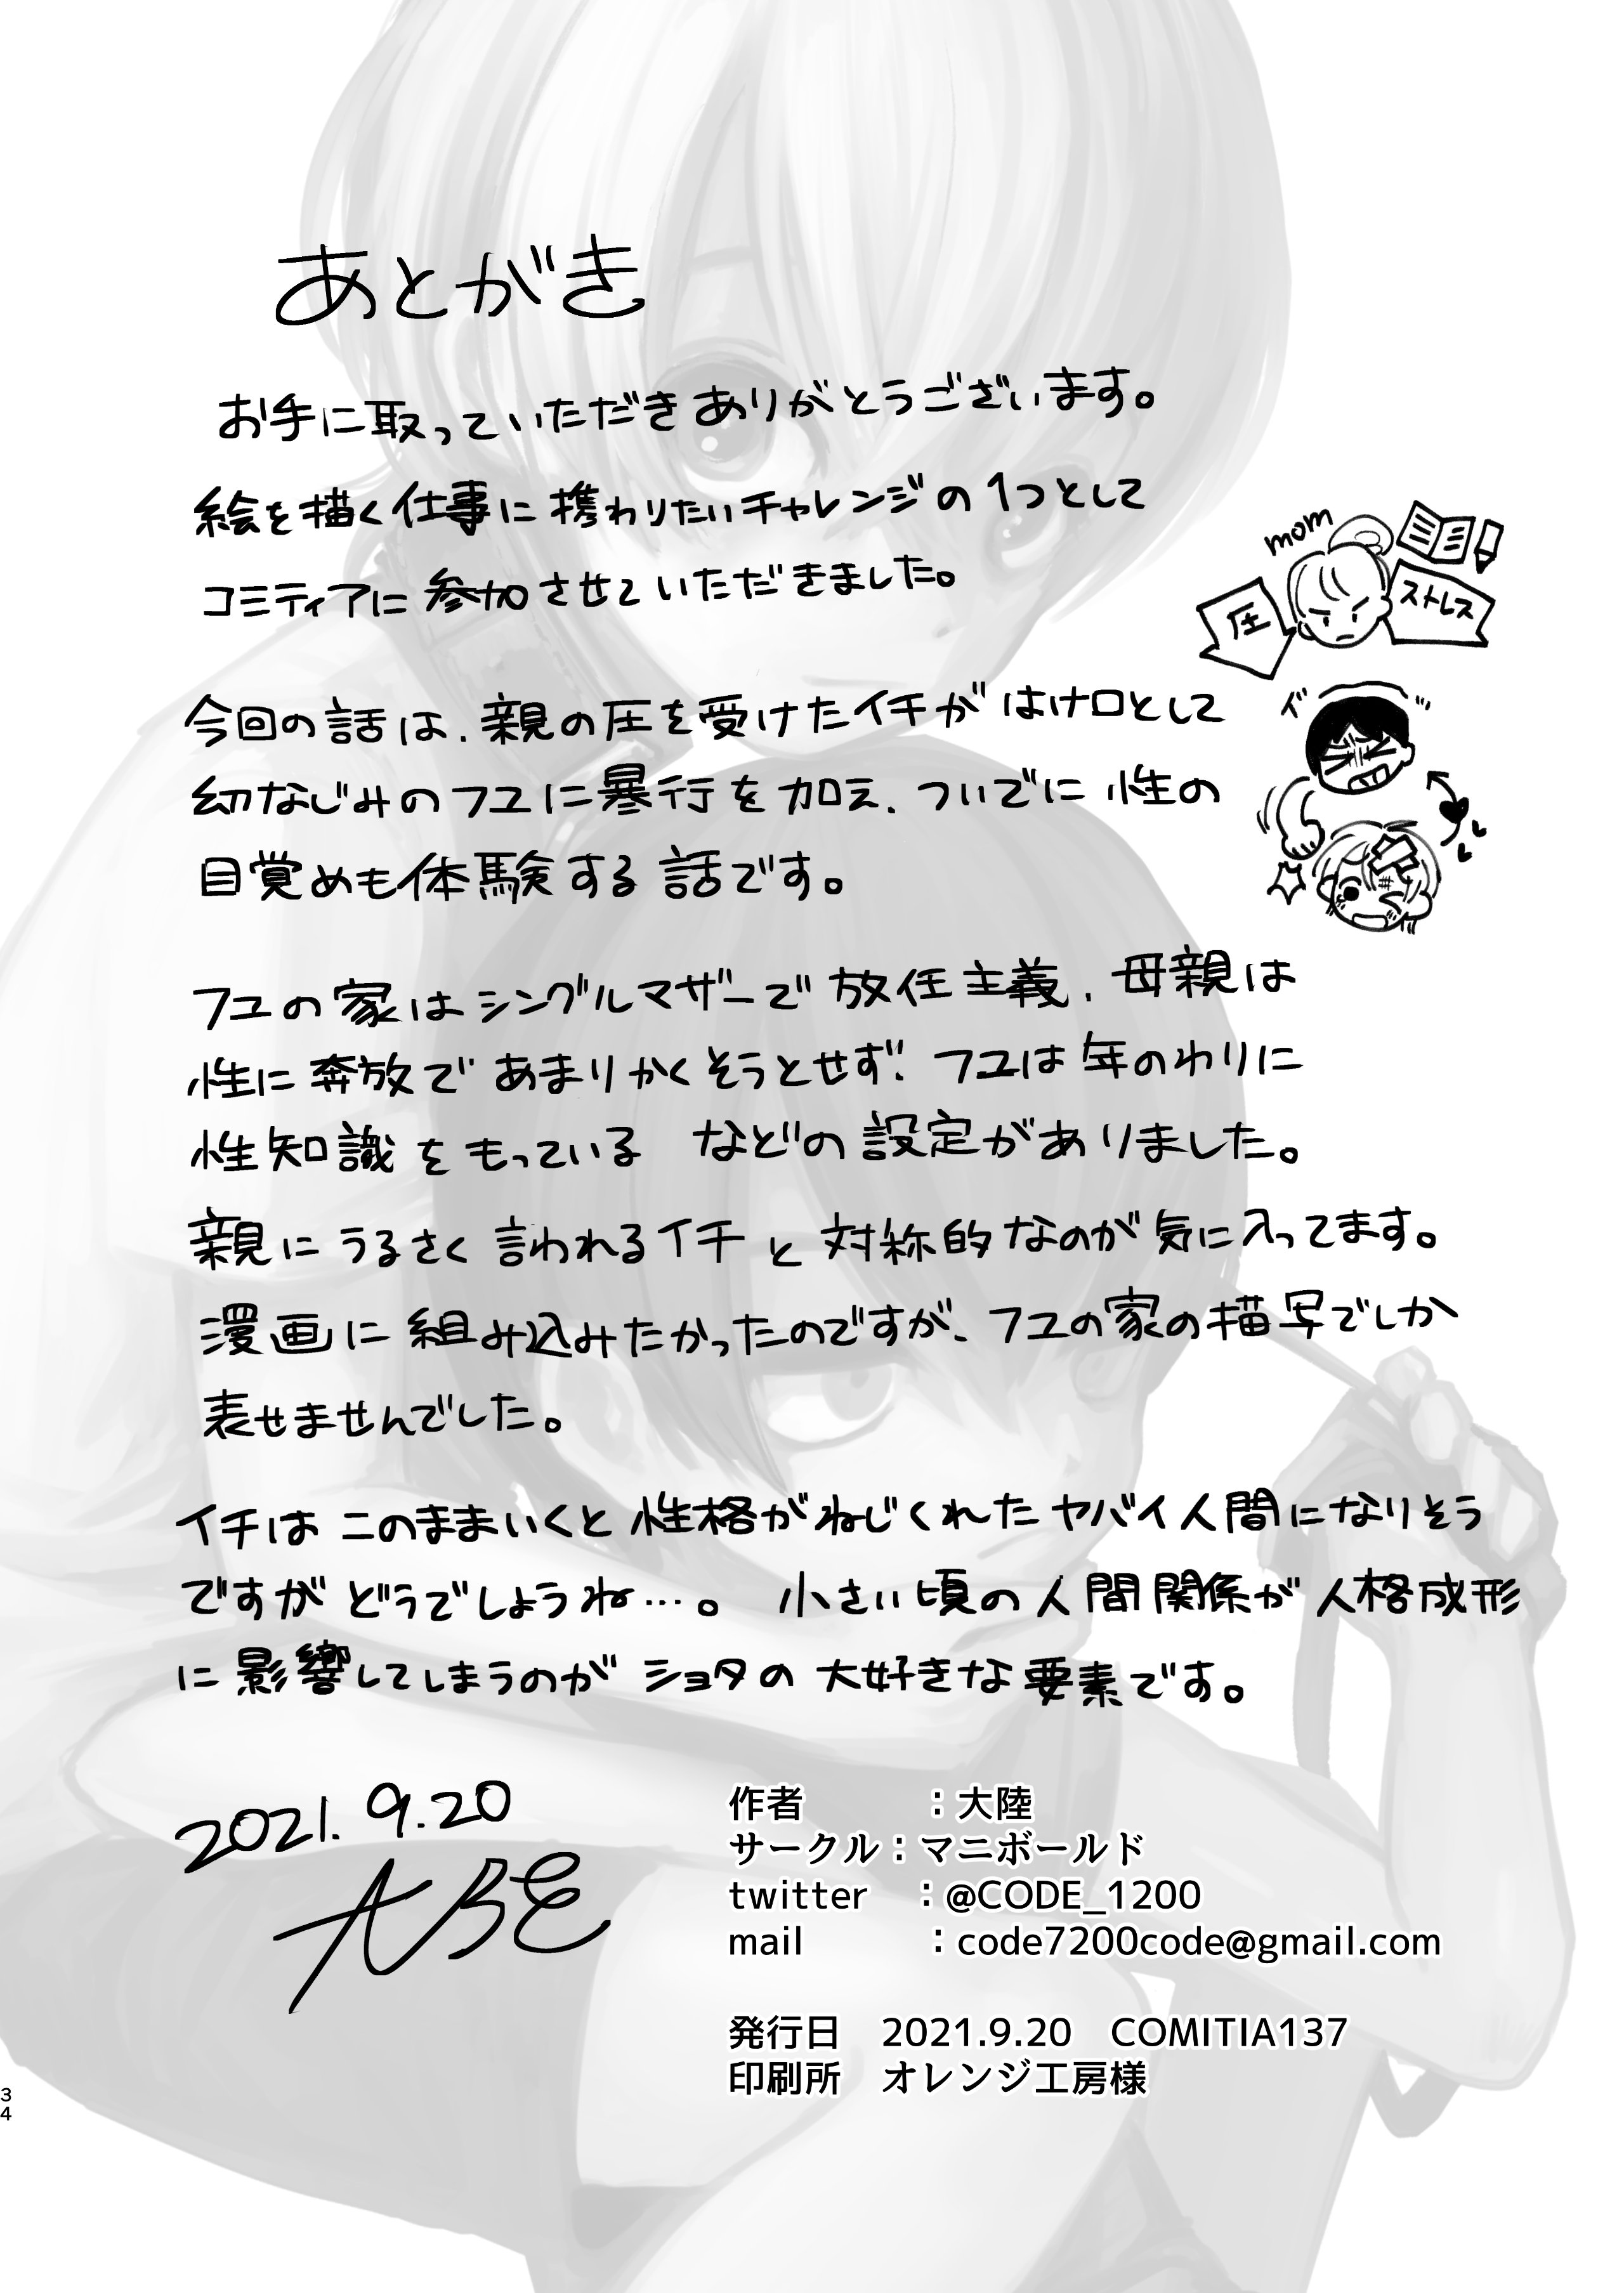 あとがき
お手に取っていただきありがとうございます。
絵を描く仕事に携わりたいチャレンジの1つとして
コミティアに参加させていただきました。
mom
圧
ストレス
今回の話は、親の圧を受けたイチがはけ口として
幼なじみのフユに暴行を加え、ついでに性の
目覚めも体験する話です。
フユの家はシングルマザーで放任主義、母親は
性に奔放であまりかくそうとせず、フユは年のわりに
性知識をもっている などの設定がありました。
親にうるさく言われるイチと対称的なのが気に入ってます。
漫画に組み込みたかったのですが、フユの家の描写でしか
表せませんでした。
イチはこのままいくと性格がねじくれたヤバイ人間になりそう
ですがどうでしょうね…。 小さい頃の人間関係が人格成形
に影響してしまうのがショタの大好きな要素です。
2021.9.20
大陸
作者 ：大陸
サークル：マニボールド
twitter ：@CODE_1200
mail ：code7200code@gmail.com
発行日 2021.9.20 COMITIA137
印刷所 オレンジ工房様
34